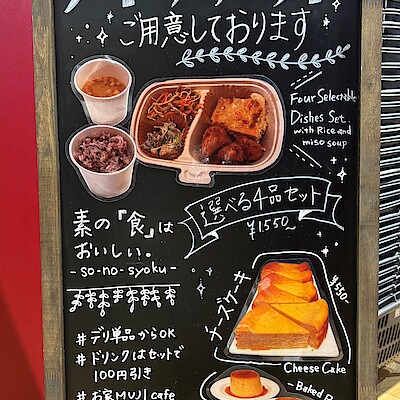 ご用意しております
Four Selectable
Dishes Set.
with Rice and
miso soup
選べる4品セット
¥1550~
素の『食』は
おいしい。
-so-no-syoku-
チーズケーキ
¥550-
Cheese Cake
-Baked
#デリ単品からOK
#ドリンクはセットで
100円引き
#お家MUJI cafe